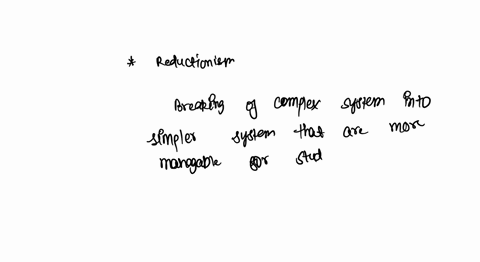 * Reductionism
Breaking of complex system into
simpler system that are more
managable for stud